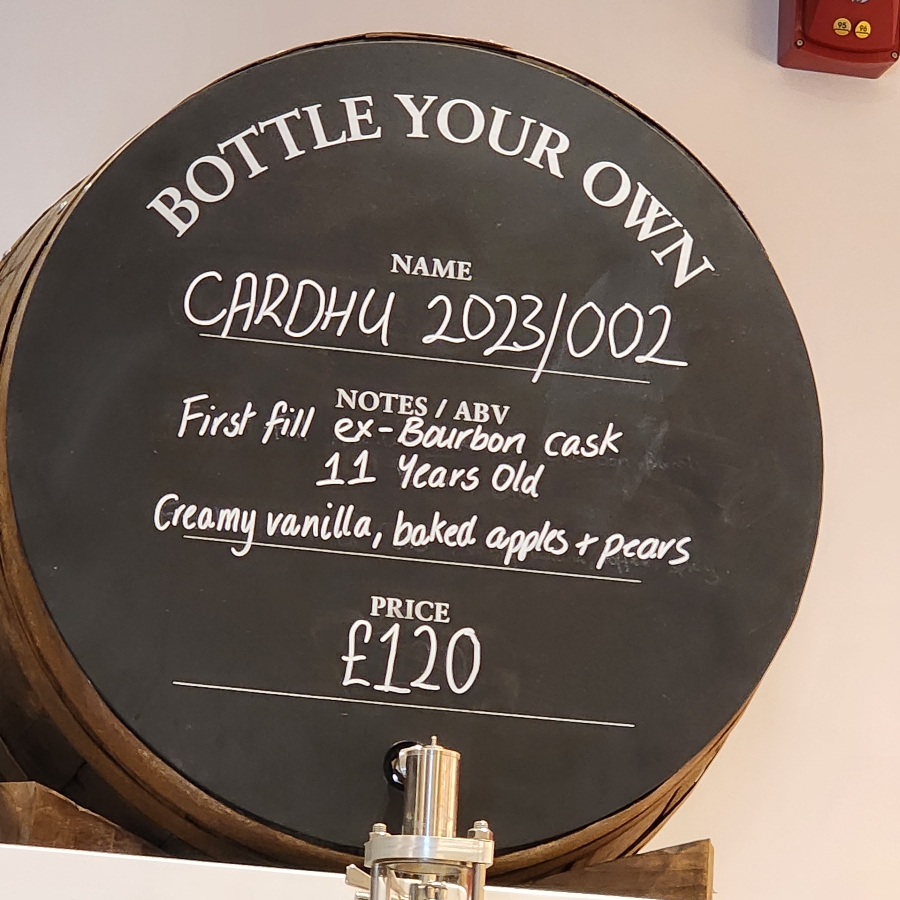 BOTTLE YOUR OWN
NAME
CARDHU 2023/002
NOTES / ABV
First fill ex-Bourbon cask
11 Years Old
Creamy vanilla, baked apples + pears
PRICE
£120
95 96